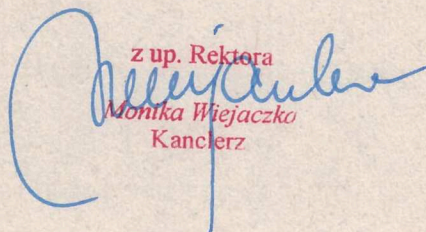 z up. Rektora
Monika Wiejaczka
Kanclerz